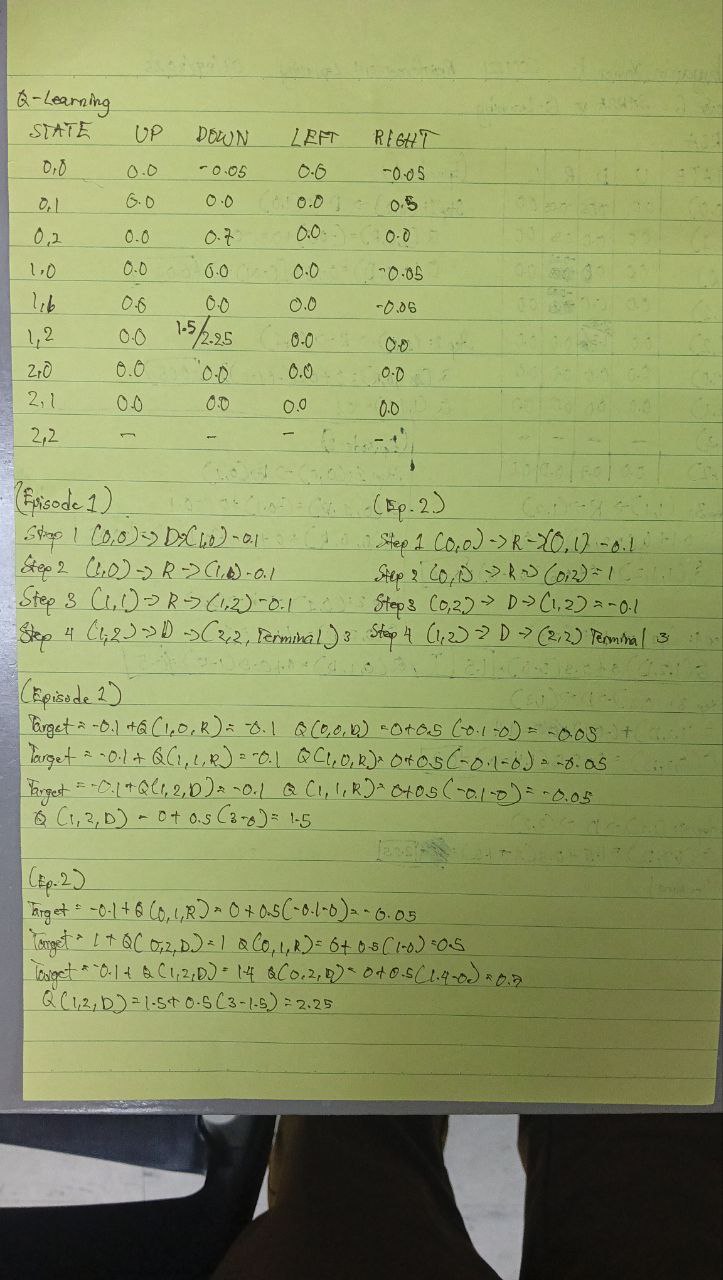 Q-Learning
STATE UP DOWN LEFT RIGHT
0,0 0.0 -0.05 0.0 -0.05
0,1 0.0 0.0 0.0 0.5
0,2 0.0 0.7 0.0 0.0
1,0 0.0 0.0 0.0 -0.05
1,1 0.0 0.0 0.0 -0.05
1,2 0.0 1.5/2.25 0.0 0.0
2,0 0.0 0.0 0.0 0.0
2,1 0.0 0.0 0.0 0.0
2,2 - - - -
(Episode 1) (Ep. 2)
Step 1 (0,0) → D → (1,0) -0.1 Step 1 (0,0) → R → (0,1) -0.1
Step 2 (1,0) → R → (1,1) -0.1 Step 2 (0,1) → R → (0,2) = 1
Step 3 (1,1) → R → (1,2) -0.1 Step 3 (0,2) → D → (1,2) = -0.1
Step 4 (1,2) → D → (2,2, Terminal) 3 Step 4 (1,2) → D → (2,2) Terminal 3
(Episode 1)
Target = -0.1 + Q(1,0,R) = -0.1 Q(0,0,D) = 0+0.5 (-0.1-0) = -0.05
Target = -0.1 + Q(1,1,R) = -0.1 Q(1,0,R) = 0+0.5 (-0.1-0) = -0.05
Target = -0.1 + Q(1,2,D) = -0.1 Q(1,1,R) = 0+0.5 (-0.1-0) = -0.05
Q (1,2,D) = 0 + 0.5 (3-0) = 1.5
(Ep. 2)
Target = -0.1 + Q (0,1,R) = 0 + 0.5 (-0.1-0) = -0.05
Target = 1 + Q(0,2,D) = 1 Q(0,1,R) = 0 + 0.5 (1-0) = 0.5
Target = -0.1 + Q(1,2,D) = 1.4 Q(0,2,D) = 0+0.5 (1.4-0) = 0.7
Q (1,2,D) = 1.5 + 0.5 (3-1.5) = 2.25